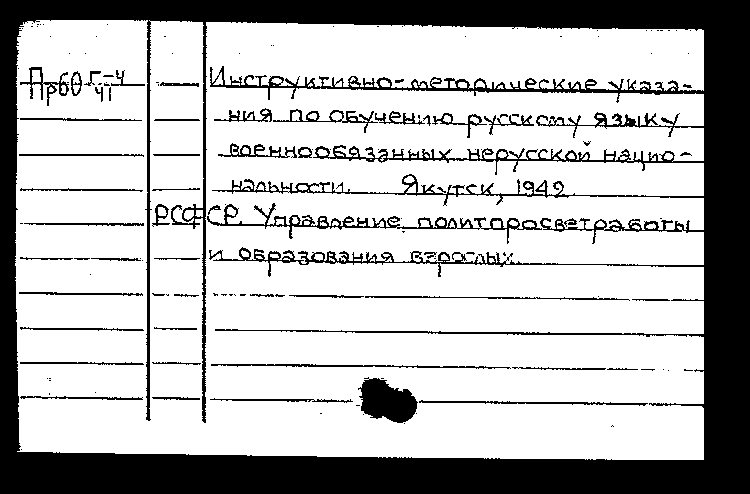 Пр60 Г-4 Инструктивно-методические указа-
41 ния по обучению русскому языку
военнообязанных нерусской нацио-
нальности. Якутск, 1942.
РСФСР. Управление политпросветработы
и образования взрослых.